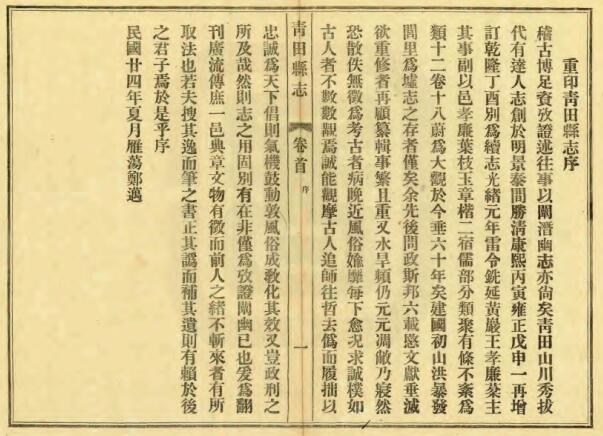 重印靑田縣志序
稽古博足資攷證述往事以闡潛幽志亦尙矣靑田山川秀拔
代有達人志創於明景泰間勝淸康熙丙寅雍正戊申一再增
訂乾隆丁酉別爲續志光緒元年雷令銑延黃巖王孝廉棻主
其事副以邑孝廉葉枝玉章楷二宿儒部分類聚有條不紊爲
類十二卷十八蔚爲大觀於今垂六十年矣建國初山洪暴發
閭里爲墟志之存者僅矣余先後問政斯邦六載愍文獻垂滅
欲重修者再顧纂輯事繁且重又水旱頻仍元元凋敝乃寢然
恐散佚無徵爲考古者病晚近風俗媮靡每下愈况求誠樸如
古人者不數數覯焉誠能觀摩古人追師往哲去僞而履拙以
靑田縣志
卷首
序
一
忠誠爲天下倡則氣機鼓動敦風俗成敎化其效又豈政刑之
所及哉然則志之用固別有在非僅爲攷證闡幽已也爰爲翻
刊廣流傳庶一邑典章文物有徵而前人之緒不斬來者有所
取法也若夫搜其逸而筆之書正其譌而補其遺則有賴於後
之君子焉於是乎序
民國廿四年夏月雁蕩鄭邁